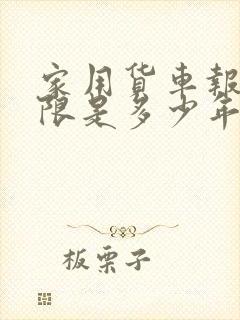 家用货车報
限是多少年
板栗子